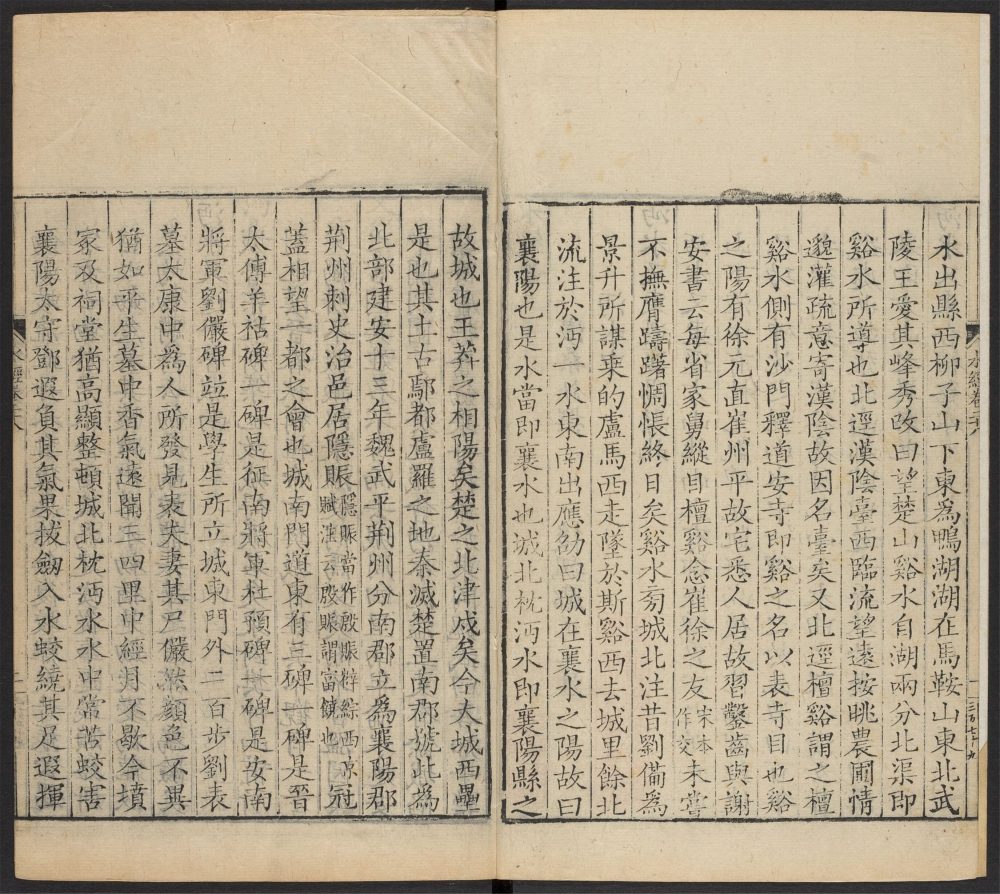 水出縣西柳子山下東爲鴨湖湖在馬鞍山東北武
陵王愛其峰秀改曰望楚山谿水自湖兩分北渠即
谿水所導也北逕漢陰臺西臨流望遠按眺農圃情
邈灌疏意寄漢陰故因名臺矣又北逕檀谿謂之檀
谿水水側有沙門釋道安寺即谿之名以表寺目也谿
之陽有徐元直崔州平故宅悉人居故習鑿齒與謝
安書云每省家舅縱目檀谿念崔徐之友宋本作交未嘗
不撫膺躊躇惆悵終日矣谿水旁城北注昔劉備爲
景升所謀乗的盧馬西走墜於斯谿西去城里餘北
流注於沔一水東南出應劭曰城在襄水之陽故曰
襄陽也是水當即襄水也城北枕沔水即襄陽縣之
故城也王莽之相陽矣楚之北津戍矣今大城西壘
是也其土古鄢都盧羅之地秦滅楚置南郡號此爲
北部建安十三年魏武平荆州分南郡立爲襄陽郡
荆州刺史治邑居隱賑隱賑當作殷賑薛綜西京賦注云殷賑謂富饒也冠
蓋相望一都之會也城南門道東有三碑一碑是晉
太傅羊祜碑一碑是征南將軍杜預碑一碑是安南
將軍劉儼碑竝是學生所立城東門外二百步劉表
墓太康中爲人所發見表夫妻其尸儼然顏色不異
猶如平生墓中香氣遠聞三四里中經月不歇今墳
冢及祠堂猶高顯整頓城北枕沔水水中常苦蛟害
襄陽太守鄧遐負其氣果拔劒入水蛟繞其足遐揮